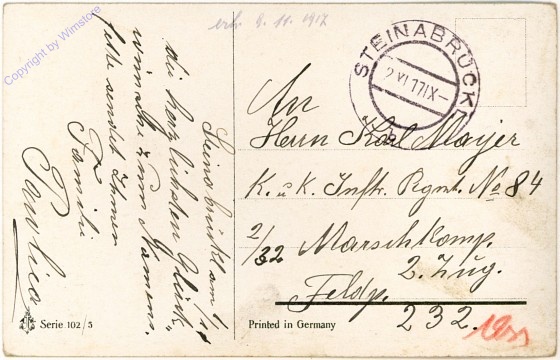 Copyright by Wimstore
erh. 9. 11. 1917
STEINABRÜCKL
2 VI 17 IX-
Steinabrückl am 1/11
die herzlichsten Glück-
wünsche zum Namens-
feste sendet Ihnen
Familie
An
Herrn Karl Mayer
K. u. K. Inftr. Rgmt. No 84
2/32 Marschkomp.
2. Zug.
Feldp.
232.
Serie 102/5
Printed in Germany